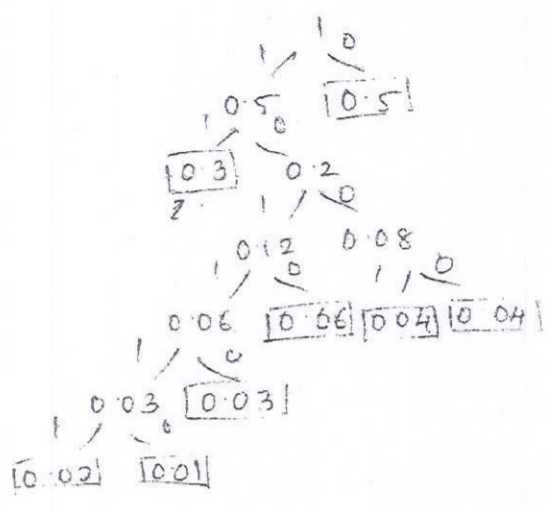 1
1 0
0.5 0.5
1 0
0.3 0.2
1 0
0.12 0.08
1 0 1 0
0.06 0.06 0.04 0.04
1 0
0.03 0.03
1 0
0.02 0.01